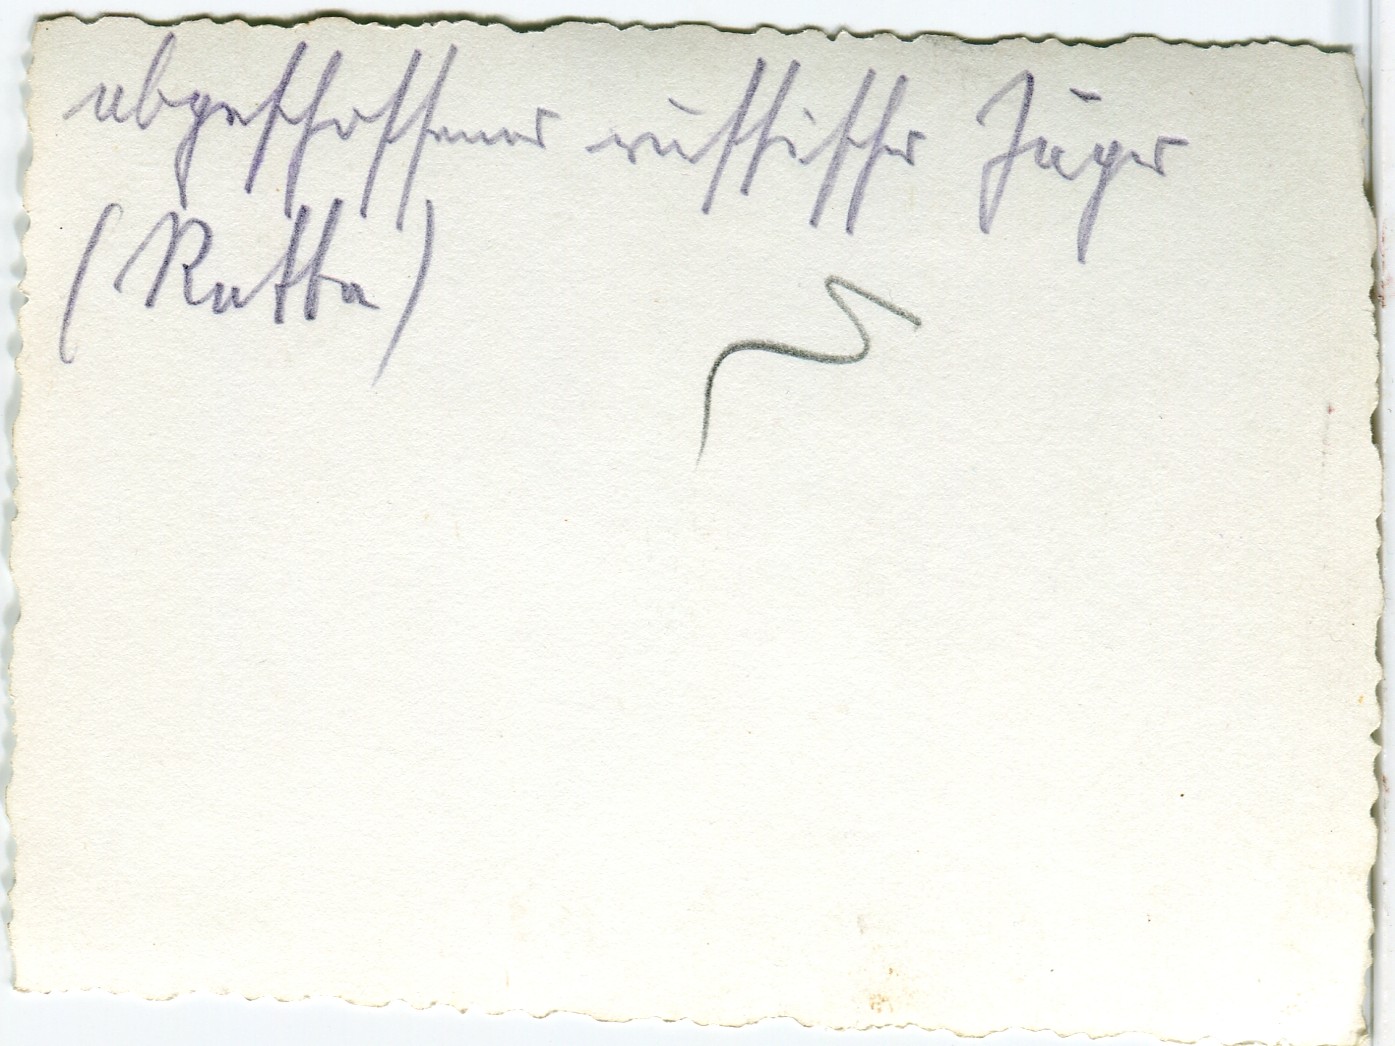 abgeschossener russischer Jäger
(Ratta)